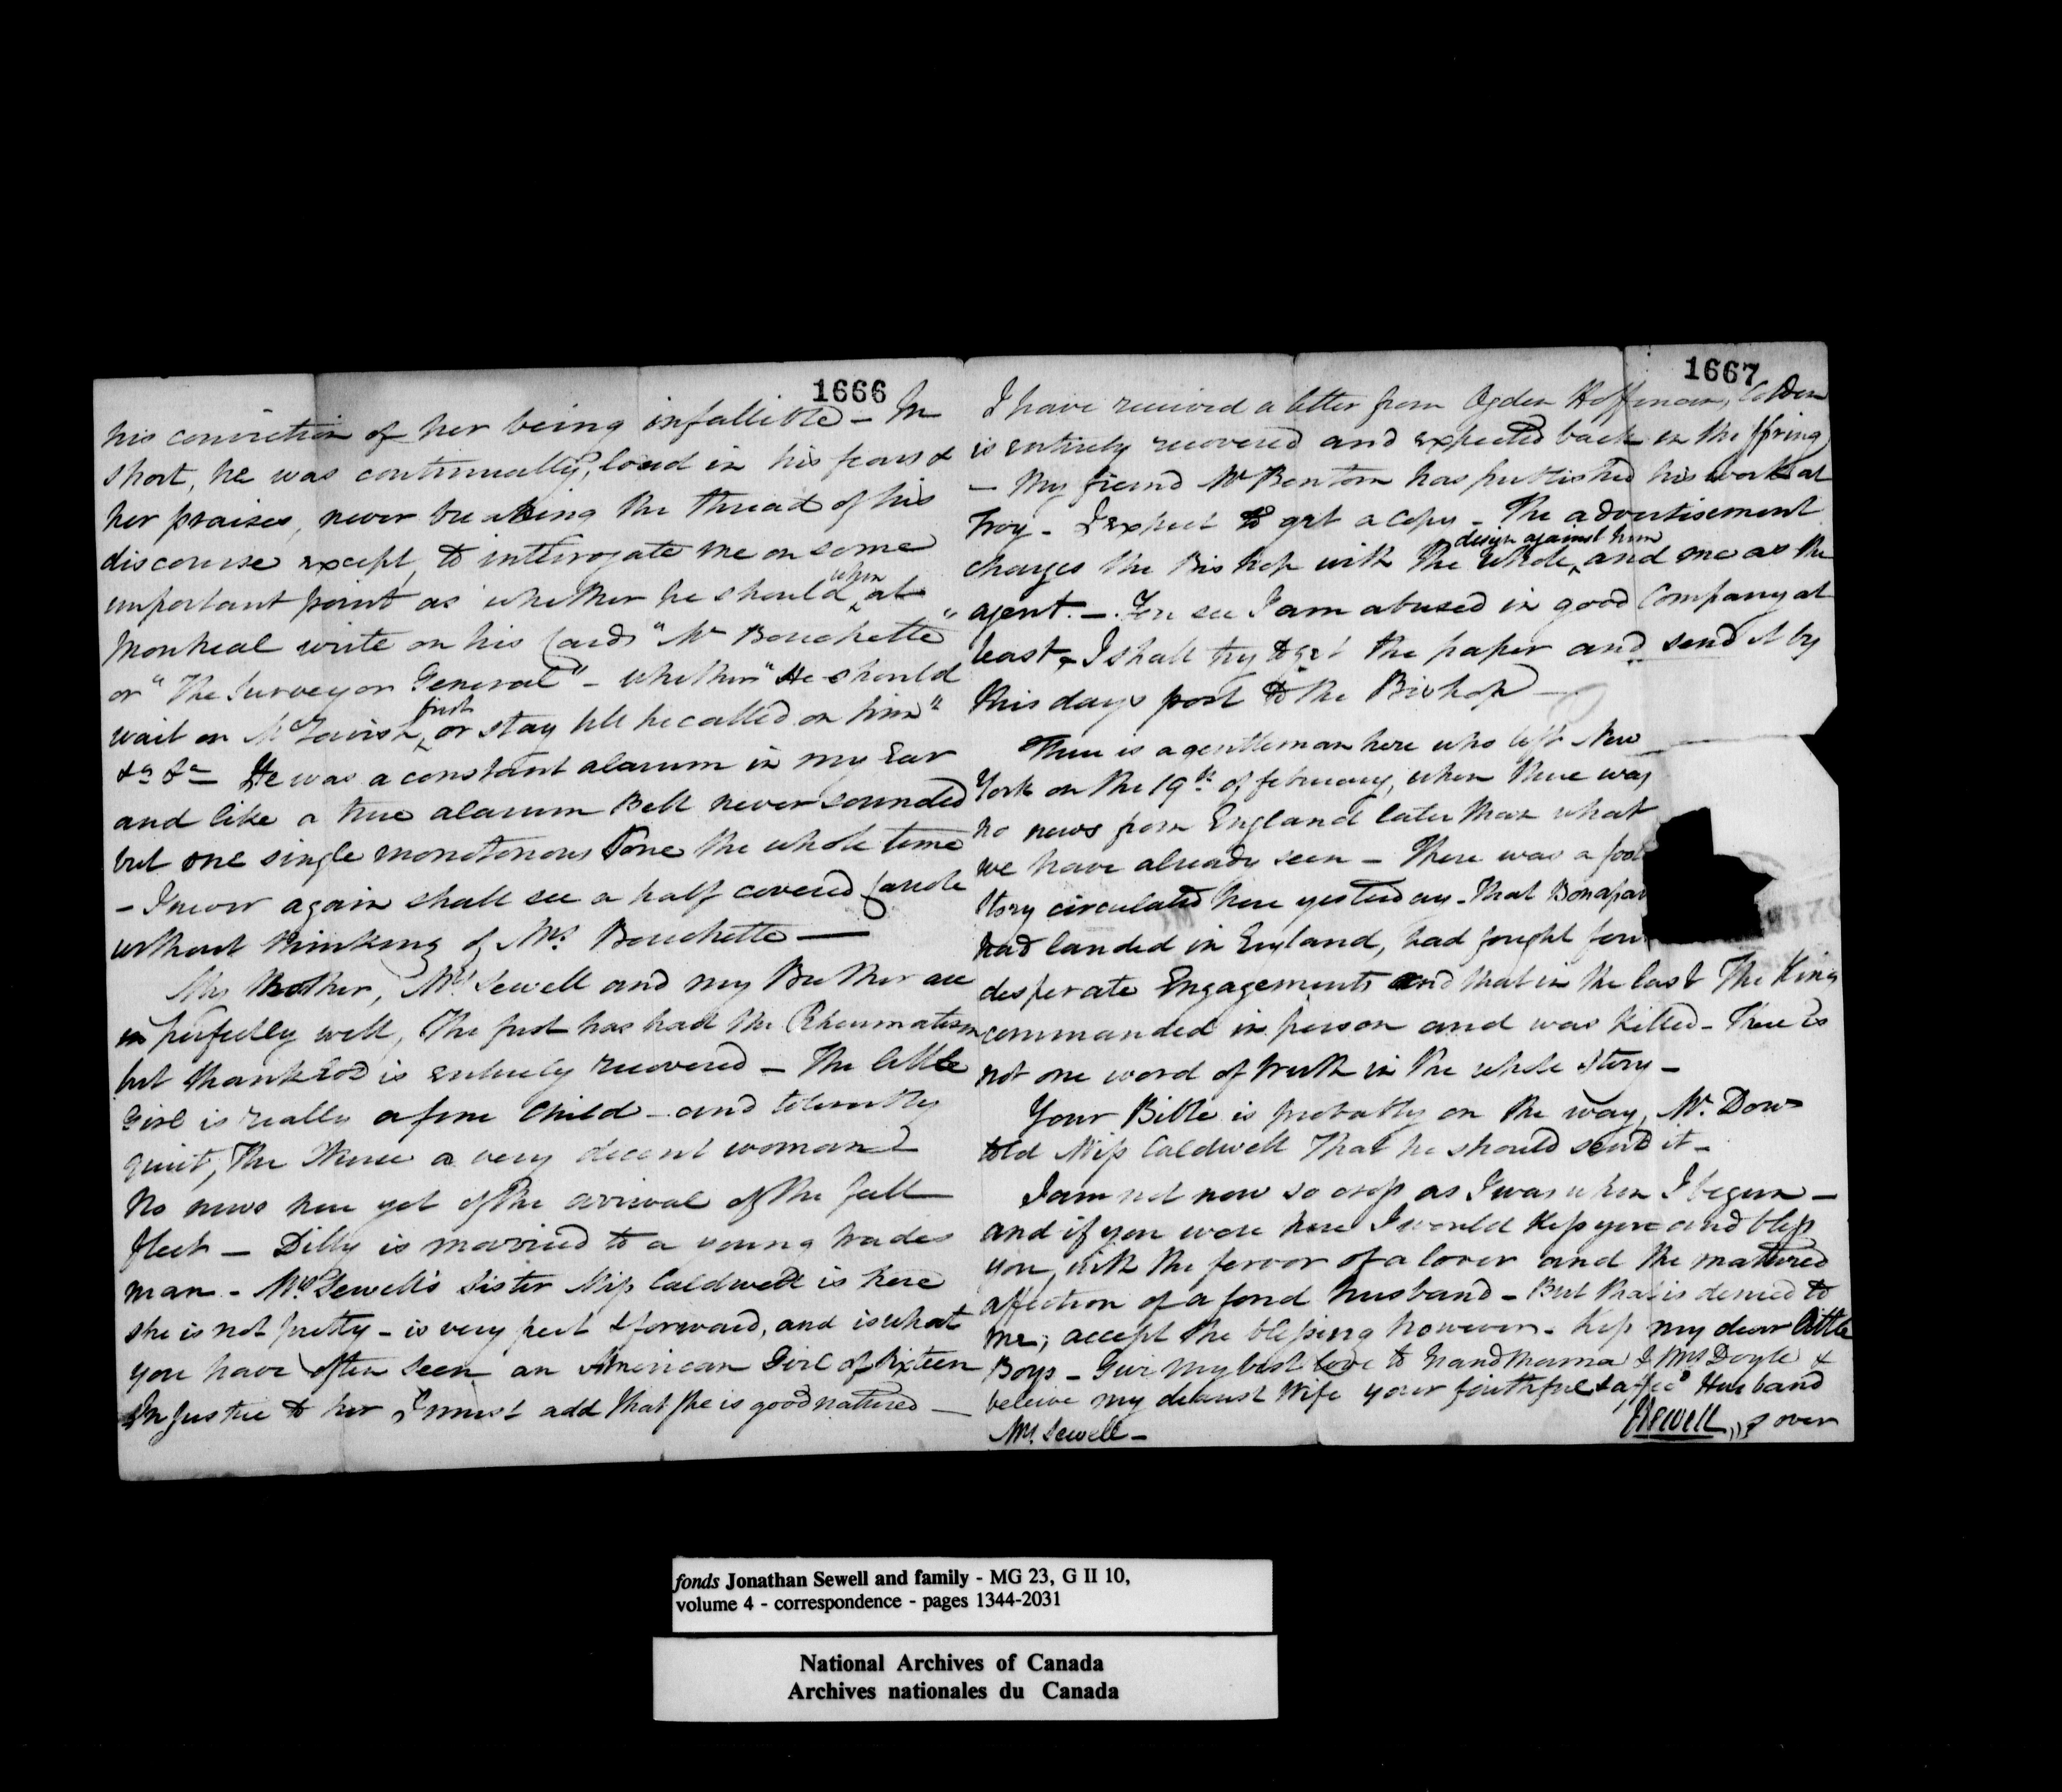 1666
his conviction of her being infallible - In
short, he was continually, loud in his fears &
her praises, never breaking the thread of his
discourse except, to interrogate me on some
important point as whether he should when at
Montreal write on his Cards "Mr Bouchette"
or "The Surveyor General" - whether "He should
wait on McTavish first, or stay till he called on him"
&a &a - He was a constant alarum in my Ear
and like a true alarum Bell never sounded
but one single monotonous Tone the whole time
- I never again shall see a half covered Cariole
without thinking of Mrs Bouchette —
My Mother, Mrs Sewell and my Brother are
perfectly well, The first has had the Rheumatism
but thank God is entirely recovered - The little
Girl is really a fine Child - and tolerably
quiet, The Nurse a very decent woman
No news here yet of the arrival of the fall
fleet - Dilly is married to a young trades
man - Mrs Sewell's Sister Miss Caldwell is here
she is not pretty - is very pert & forward, and is what
you have often seen an American Girl of Sixteen
In Justice to her I must add that she is good natured —
1667
I have received a letter from Ogden Hoffman, Colden
is entirely recovered and expected back in the Spring
- My friend Mr Bentom has published his work at
Troy - I expect to get a copy - The advertisement
charges the Bishop with the whole design against him, and me as the
agent. - You see I am abused in good Company at
least, I shall try to get the paper and send it by
this days post to the Bishop —
There is a gentleman here who left New
York on the 19th of february, when there was
no news from England later than what
we have already seen - There was a fool
Story circulated here yesterday - That Bonapar
had landed in England, had fought four
desperate Engagements and that in the last The King
commanded in person and was killed - There is
not one word of truth in the whole Story -
Your Bible is probably on the way, Mr. Dow
told Miss Caldwell That he should send it -
I am not now so cross as I was when I begun -
and if you were here I would Kiss you and bless
you, with the fervor of a lover and the matured
affection of a fond husband - But that is denied to
me; accept the blessing however - Kiss my dear little
Boys - Give my best love to Grandmama & Mrs Doyle &
beleive my dearest Wife your faithful & affece Husband
JSewell over
Mrs. Sewell -
fonds Jonathan Sewell and family - MG 23, G II 10,
volume 4 - correspondence - pages 1344-2031
National Archives of Canada
Archives nationales du Canada